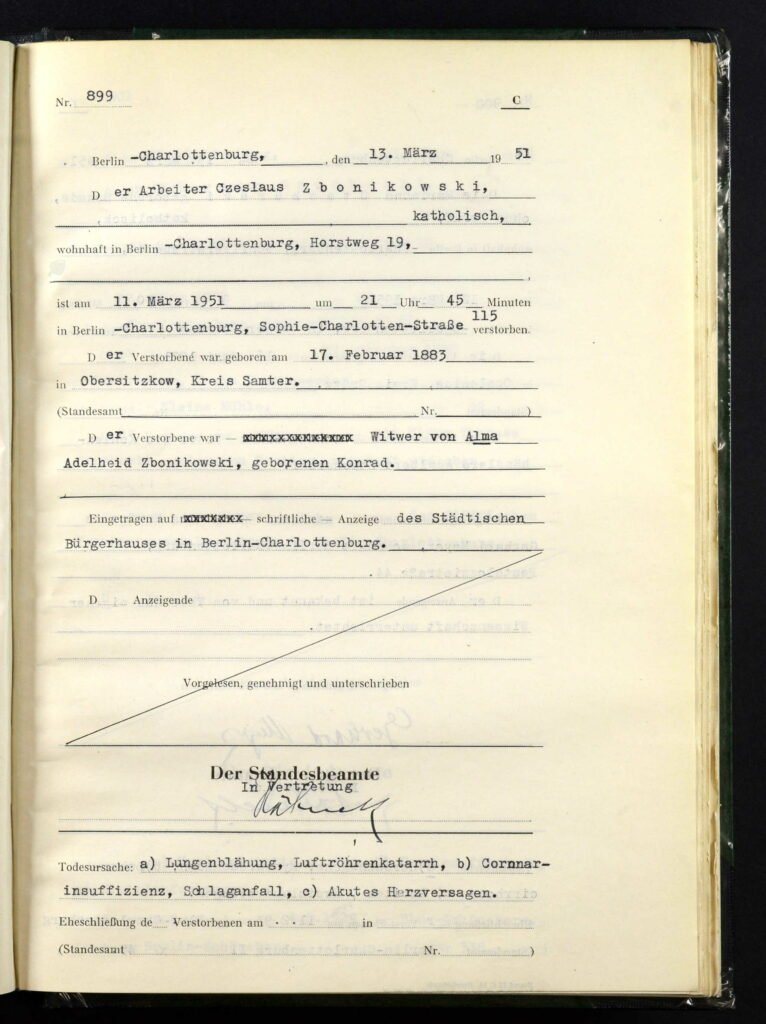 Nr. 899 C
Berlin -Charlottenburg, , den 13. März 19 51
D er Arbeiter Czeslaus Zbonikowski,
katholisch,
wohnhaft in Berlin -Charlottenburg, Horstweg 19,
ist am 11. März 1951 um 21 Uhr 45 Minuten
in Berlin -Charlottenburg, Sophie-Charlotten-Straße 115 verstorben.
D er Verstorbene war geboren am 17. Februar 1883
in Obersitzkow, Kreis Samter.
(Standesamt Nr. )
D er Verstorbene war — xxxxxxxxxxxxx Witwer von Alma
Adelheid Zbonikowski, geborenen Konrad.
Eingetragen auf xxxxxxx schriftliche — Anzeige des Städtischen
Bürgerhauses in Berlin-Charlottenburg.
D Anzeigende
Vorgelesen, genehmigt und unterschrieben
Der Standesbeamte
In Vertretung
Todesursache: a) Lungenblähung, Luftröhrenkatarrh, b) Cornnar-
insuffizienz, Schlaganfall, c) Akutes Herzversagen.
Eheschließung de Verstorbenen am . . in
(Standesamt Nr. )